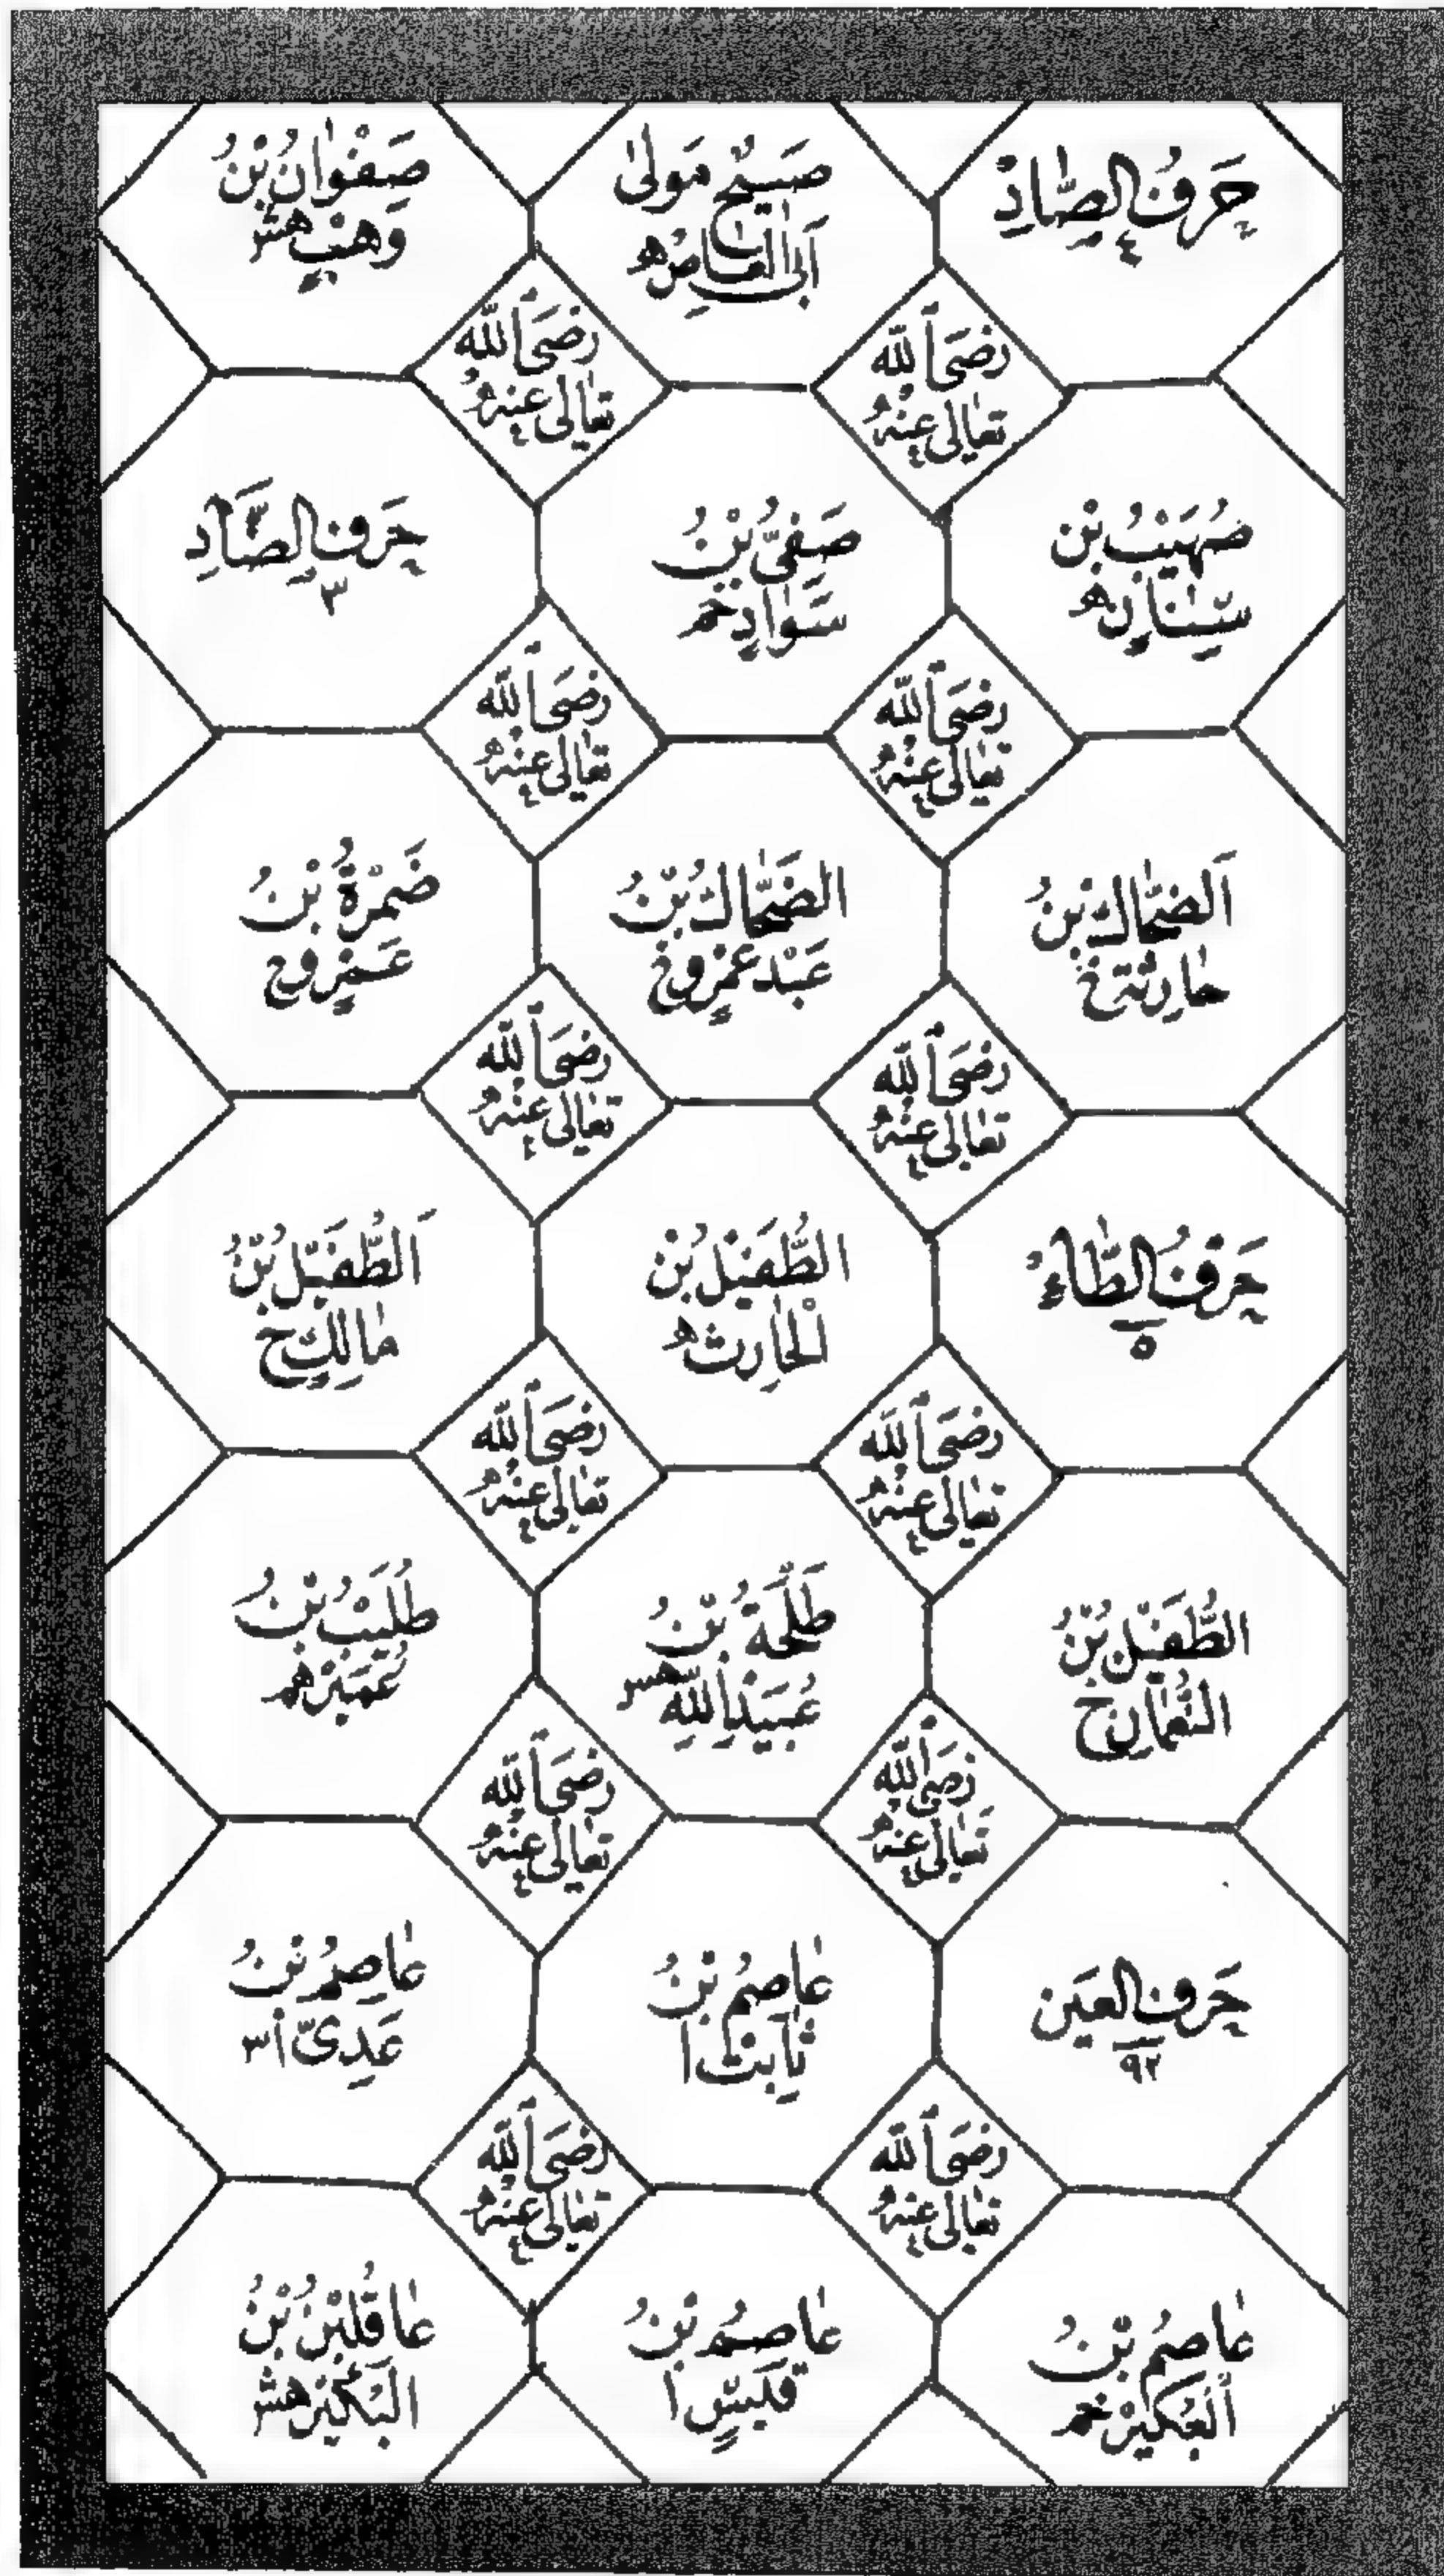 حَرْفُ الصَّادْ
٤
صَبِيْحٌ مَولىٰ
اَبِى الْعَاصِ ه
صَفْوَانُ بْنُ
وَهْبٍ هش
رَضِىَ اللّٰه
تَعَالىٰ عَنْهُ
رَضِىَ اللّٰه
تَعَالىٰ عَنْهُ
صُهَيْبُ بْن
سِنَانٍ ه
صَفِىُّ بْنُ
سَوَادٍ خم
حَرف الضَّادِ
٣
رَضِىَ اللّٰه
تَعَالىٰ عَنْهُ
رَضِىَ اللّٰه
تَعَالىٰ عَنْهُ
اَلضَّحَّاكُ بْنُ
حَارِثَة خ
الضَّحَّاكُ بْنُ
عَبْدِ عَمْرٍو خ
ضَمْرَةُ بْنُ
عَمْرٍو خ
رَضِىَ اللّٰه
تَعَالىٰ عَنْهُ
رَضِىَ اللّٰه
تَعَالىٰ عَنْهُ
حَرْفُ الطَّاءِ
٥
الطُّفَيْلُ بْنُ
الْحَارِث ه
اَلطُّفَيْلُ بْنُ
مَالِكٍ خ
رَضِىَ اللّٰه
تَعَالىٰ عَنْهُ
رَضِىَ اللّٰه
تَعَالىٰ عَنْهُ
الطُّفَيْلُ بْنُ
النُّعْمَانِ خ
طَلْحَةُ بْنُ
عُبَيْدِ اللّٰهِ
طُلَيْبُ بْنُ
عُمَيْرٍ هم
رَضِىَ اللّٰه
تَعَالىٰ عَنْهُ
رَضِىَ اللّٰه
تَعَالىٰ عَنْهُ
حَرف العَين
٩٢
عَاصِمُ بْنُ
ثَابِت ا
عَاصِمُ بْنُ
عَدِىّ ا٣
رَضِىَ اللّٰه
تَعَالىٰ عَنْهُ
رَضِىَ اللّٰه
تَعَالىٰ عَنْهُ
عَاصِمُ بْنُ
اَلْعُكَيْرْ خم
عَاصِمُ بْنُ
قَيْسٍ ا
عَاقِلُ بْنُ
الْبُكَيْر هش